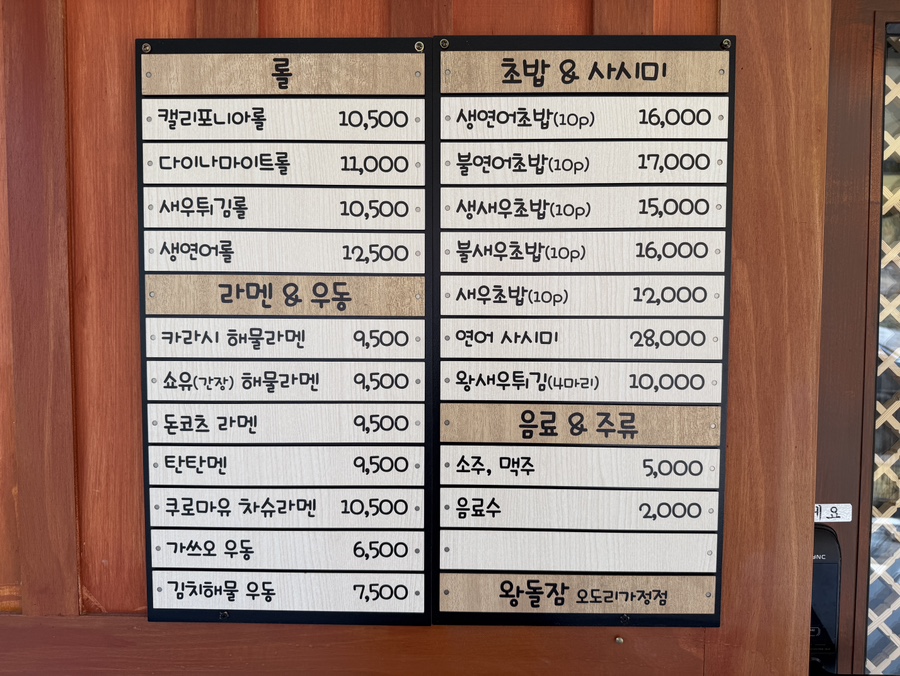 롤
캘리포니아롤 10,500
다이나마이트롤 11,000
새우튀김롤 10,500
생연어롤 12,500
라멘 & 우동
카라시 해물라멘 9,500
쇼유(간장) 해물라멘 9,500
돈코츠 라멘 9,500
탄탄멘 9,500
쿠로마유 차슈라멘 10,500
가쓰오 우동 6,500
김치해물 우동 7,500
초밥 & 사시미
생연어초밥(10p) 16,000
불연어초밥(10p) 17,000
생새우초밥(10p) 15,000
불새우초밥(10p) 16,000
새우초밥(10p) 12,000
연어 사시미 28,000
왕새우튀김(4마리) 10,000
음료 & 주류
소주, 맥주 5,000
음료수 2,000
왕돌잠 오도리가정점